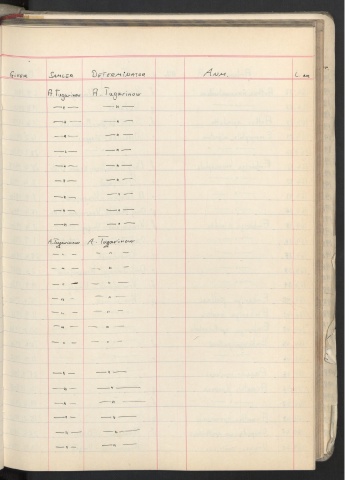 GIVER SAMLER DETERMINATOR ANM.
A. Tugarinow A. Tugarinow
—"— —"—
—"— —"—
—"— —"—
—"— —"—
—"— —"—
—"— —"—
—"— —"—
—"— —"—
—"— —"—
A. Tugarinow A. Tugarinow
—"— —"—
—"— —"—
—"— —"—
—"— —"—
—"— —"—
—"— —"—
—"— —"—
—"— —"—
—"— —"—
—"— —"—
—"— —"—
—"— —"—
—"— —"—